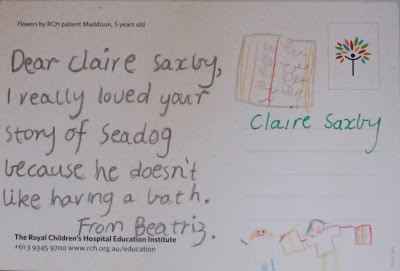 Flowers by RCH patient Maddison, 5 years old
Dear Claire Saxby,
I really loved your
story of Seadog
because he doesn't
like having a bath.
From Beatriz.
The Royal Children's Hospital Education Institute
+61 3 9345 9700 www.rch.org.au/education
Claire Saxby